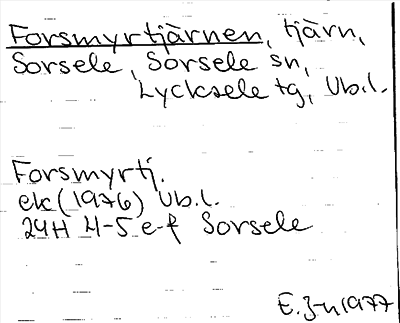 Forsmyrtjärnen, tjärn,
Sorsele, Sorsele sn,
Lycksele tg, Vb.l.
Forsmyrtj.
ek (1976) Vb.l.
24H 4-5 e-f Sorsele
E.J-n 1977